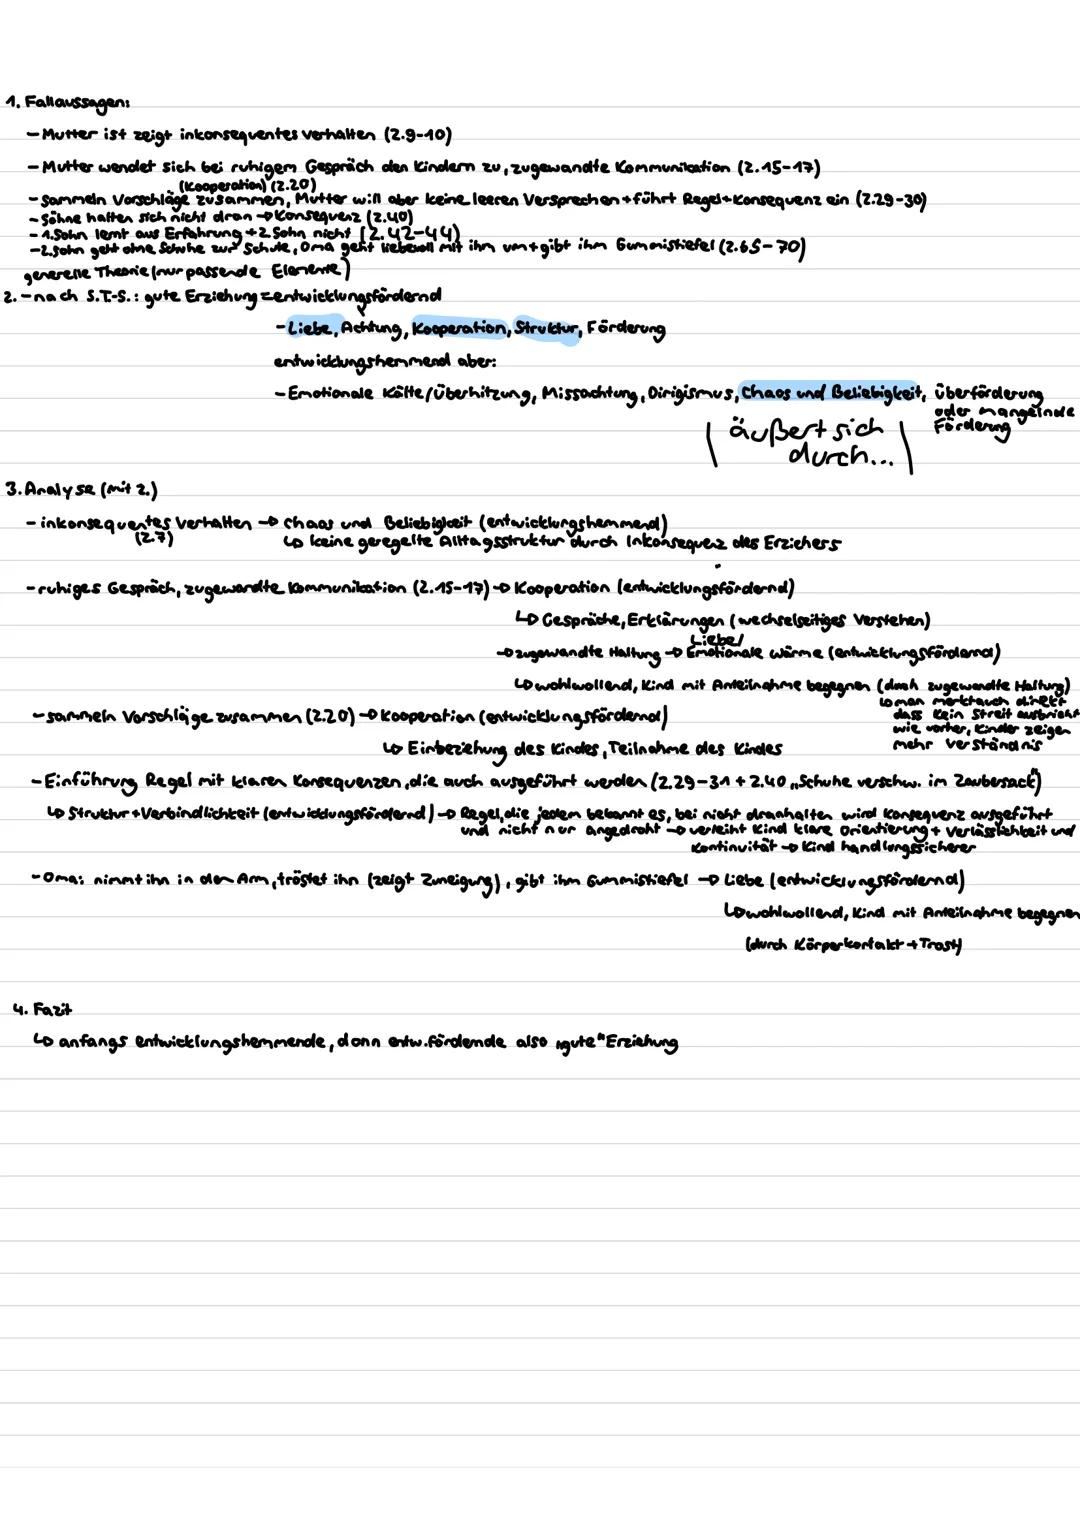 1. Fallaussagen:
- Mutter ist zeigt inkonsequentes verhalten (Z.9-10)
- Mutter wendet sich bei ruhigem Gespräch den Kindern zu, zugewandte Kommunikation (Z.15-17)
(Kooperation) (Z.20)
- sammeln Vorschläge zusammen, Mutter will aber keine leeren Versprechen + führt Regel+Konsequenz ein (Z.29-30)
- Söhne halten sich nicht dran → Konsequenz (Z.40)
- 1.Sohn lernt aus Erfahrung + 2.Sohn nicht (Z.42-44)
- 2.Sohn geht ohne Schuhe zur Schule, Oma geht liebevoll mit ihm um + gibt ihm Gummistiefel (Z.65-70)
generelle Theorie (nur passende Elemente)
2. - nach S.T.-S.: gute Erziehung = entwicklungsfördernd
- Liebe, Achtung, Kooperation, Struktur, Förderung
entwicklungshemmend aber:
- Emotionale Kälte/Überhitzung, Missachtung, Dirigismus, Chaos und Beliebigkeit, überförderung
oder mangelnde
Förderung
| äußert sich |
durch...
3. Analyse (mit 2.)
- inkonsequentes Verhalten → Chaos und Beliebigkeit (entwicklungshemmend)
(Z.7)
↳ keine geregelte Alltagsstruktur durch Inkonsequenz des Erziehers
- ruhiges Gespräch, zugewandte Kommunikation (Z.15-17) → Kooperation (entwicklungsfördernd)
↳ Gespräche, Erklärungen (wechselseitiges Verstehen)
Liebe/
→ zugewandte Haltung → Emotionale Wärme (entwicklungsfördernd)
↳ wohlwollend, Kind mit Anteilnahme begegnen (durch zugewandte Haltung)
↳ man merkt auch direkt
dass kein Streit ausbricht
wie vorher, Kinder zeigen
mehr Verständnis
- sammeln Vorschläge zusammen (Z.20) → Kooperation (entwicklungsfördernd)
↳ Einbeziehung des Kindes, Teilnahme des Kindes
- Einführung Regel mit klaren Konsequenzen, die auch ausgeführt werden (Z.29-31 + Z.40 „Schuhe verschw. im Zaubersack")
↳ Struktur + Verbindlichkeit (entwicklungsfördernd) → Regel, die jedem bekannt es, bei nicht dranhalten wird Konsequenz ausgeführt
und nicht nur angedroht → verleiht Kind klare Orientierung + Verlässlichkeit und
Kontinuität → Kind handlungssicherer
- Oma: nimmt ihn in den Arm, tröstet ihn (zeigt Zuneigung), gibt ihm Gummistiefel → Liebe (entwicklungsfördernd)
↳ wohlwollend, Kind mit Anteilnahme begegnen
(durch Körperkontakt + Trost)
4. Fazit
↳ anfangs entwicklungshemmende, dann entw.fördernde also „gute" Erziehung